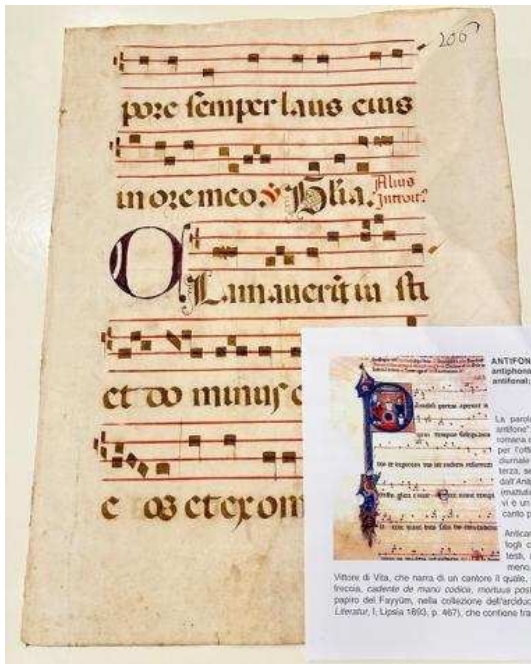 206
pore semper laus eius
in ore meo. Glia. Alius
Introit.
Clamaverūt iusti
et do minus
e os et ex om
ANTIFON
antiphona
antifonal
La parola
antifone"
romana
per l'uffi
diurnale
terza, se
dall'Anti
(mattuti
vi è un
canto p
Anticar
fogli c
testi,
meno.
Vittore di Vita, che narra di un cantore il quale,
freccia, cadente de manu codice, mortuus post
papiro del Fayyûm, nella collezione dell'arciduc
Literatur, I, Lipsia 1893, p. 467), che contiene tra